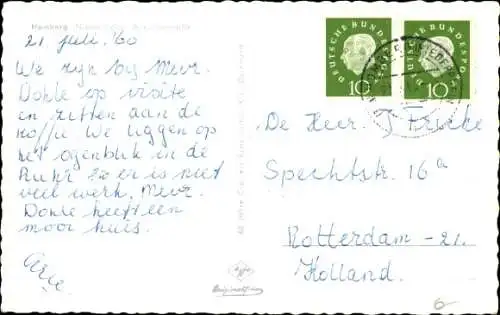 Homberg
21 Juli '60
We zyn by Mevr.
Dohle op visite
en zitten aan de
koffie We liggen op
het ogenblik in de
Ruhr er is niet
veel werk. Mevr.
Dohle heeft een
mooi huis.
DEUTSCHE BUNDESPOST
10
DEUTSCHE BUNDESPOST
10
De Heer J Fricke
Spechtstr. 16a
Rotterdam - 21.
Holland.
Agfa
6